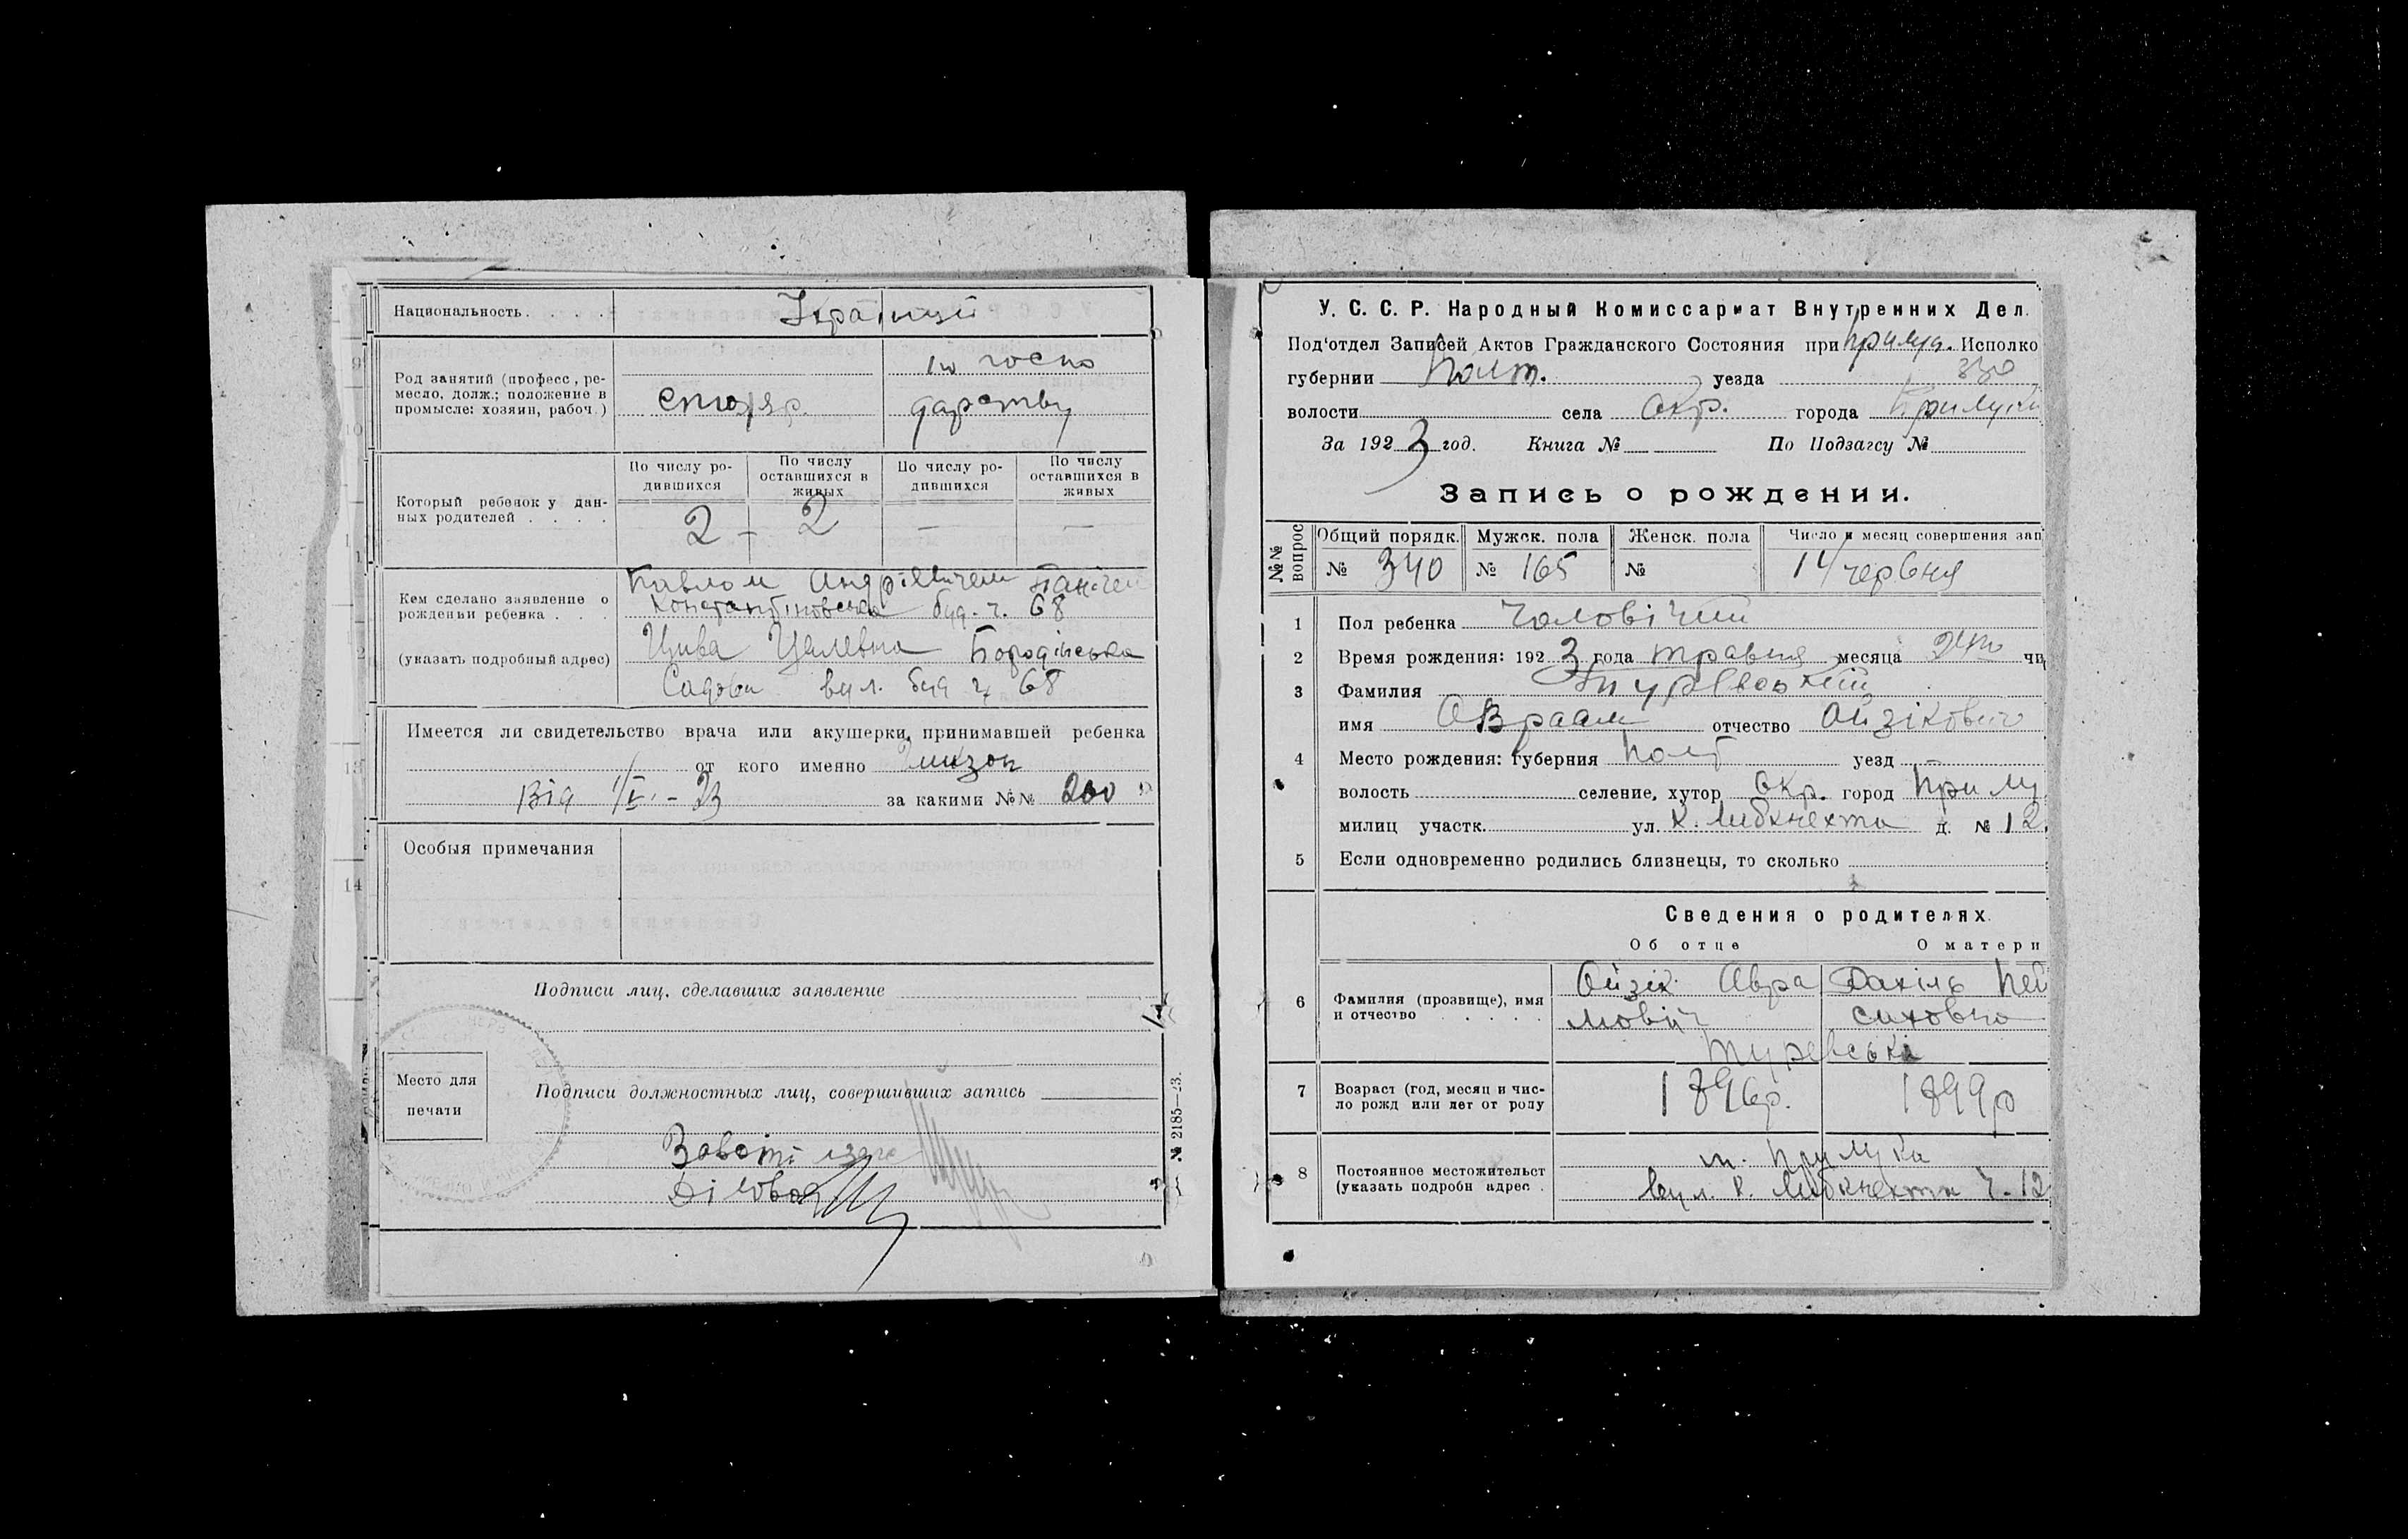 Национальность
Українці
Род занятий (професс, ре-
месло, долж.; положение в
промысле: хозяин, рабоч.)
столяр.
по госпо
дарству
Который ребенок у дан-
ных родителей
По числу ро-
дившихся
По числу
оставшихся в
живых
По числу ро-
дившихся
По числу
оставшихся в
живых
2 - 2 — —
Кем сделано заявление о
рождении ребенка
(указать подробный адрес)
Павлом Андрієвичем
Константіновська буд. ч. 68
Цива Бородінська
Садова вул. буд ч 68
Имеется ли свидетельство врача или акушерки, принимавшей ребенка
от кого именно
Від 1/V - 23 за какими №№ 200
Особыя примечания
Подписи лиц, сделавших заявление
Место для
печати
Подписи должностных лиц, совершивших запись
Діловод
№ 2185—23.
У. С. С. Р. Народный Комиссариат Внутренних Дел.
Под'отдел Записей Актов Гражданского Состояния при Прилуц. Исполко
губернии Полт. уезда
волости села Окр. города Прилуки
За 1923 год. Книга № По Подзагсу №
Запись о рождении.
№№
вопрос
Общий порядк. Мужск. пола Женск. пола Число и месяц совершения зап
№ 340 № 165 № 14 червня
1 Пол ребенка чоловічий
2 Время рождения: 1923 года травня месяца 24го чи
3 Фамилия Туревський
имя Авраам отчество Айзікович
4 Место рождения: губерния Полт уезд —
волость селение, хутор Окр. город Прилу
милиц участк. ул. К. Лібкнехта д. № 12.
5 Если одновременно родились близнецы, то сколько
Сведения о родителях.
Об отце О матери
6 Фамилия (прозвище), имя
и отчество
Айзік Авра
мович
Рахіль Пей
саховна
Туревські
7 Возраст (год, месяц и чис-
ло рожд или лет от роду
1896р. 1899р
8 Постоянное местожительст
(указать подробн адрес .
м. Прилука
вул. К. Лібкнехта ч. 12